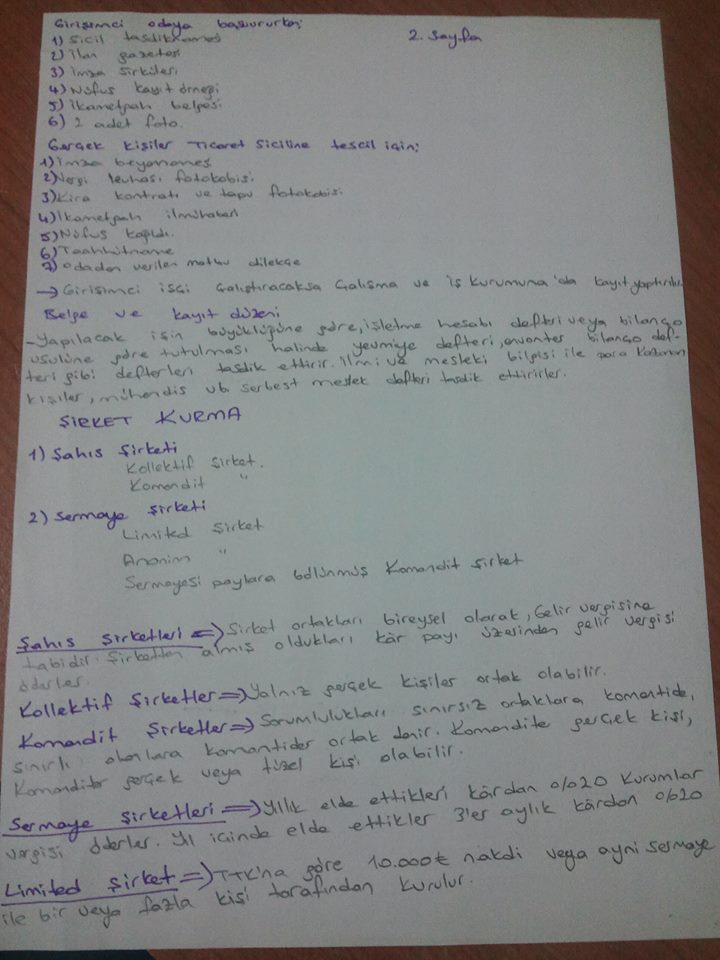 Girişimci odaya başvururken;
2. Sayfa
1) Sicil tasdiknamesi
2) İlan gazetesi
3) İmza sirküleri
4) Nüfus kayıt örneği
5) İkametgahı belgesi
6) 2 adet foto.
Gerçek kişiler Ticaret Siciline tescil için;
1) İmza beyannames
2) Vergi levhası fotokobisi
3) Kira kontratı ve tapu fotokobisi
4) İkametgahı ilmühaberi
5) Nüfus kağıdı.
6) Taahhütname
7) Odadan verilen matbu dilekçe
→ Girişimci işçi çalıştıracaksa Çalışma ve iş kurumuna'da kayıt yaptırılır.
Belge ve kayıt düzeni
- Yapılacak işin büyüklüğüne göre, işletme hesabı defteri veya bilanço
usulüne göre tutulması halinde yevmiye defteri, envanter bilanço def-
teri gibi defterleri tasdik ettirir. İlmi ve mesleki bilgisi ile para kazanan
kişiler, mühendis vb serbest meslek defteri tasdik ettirirler.
ŞİRKET KURMA
1) Şahıs Şirketi
Kollektif Şirket.
Komandit "
2) Sermaye Şirketi
Limited Şirket
Anonim "
Sermayesi paylara bölünmüş Komandit Şirket
Şahıs Şirketleri => Şirket ortakları bireysel olarak, Gelir vergisine
tabidir. Şirketten almış oldukları kâr payı üzerinden gelir vergisi
öderler.
Kollektif Şirketler => Yalnız gerçek kişiler ortak olabilir.
Komandit Şirketler => Sorumlulukları sınırsız ortaklara komantide,
sınırlı olanlara komantider ortak denir. Komandite gerçek kişi,
Komanditer gerçek veya tüzel kişi olabilir.
Sermaye Şirketleri => Yıllık elde ettikleri kârdan %20 Kurumlar
vergisi öderler. Yıl içinde elde ettikler 3'er aylık kârdan %20
Limited Şirket => TTK'na göre 10.000₺ nakdi veya ayni sermaye
ile bir veya fazla kişi tarafından kurulur.